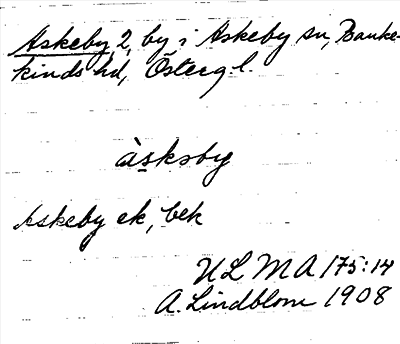 Askeby 2, by i Askeby sn, Banke-
kinds hd, Östergl.
àsksby
Askeby ek, bek
ULMA 175:14
A. Lindblom 1908